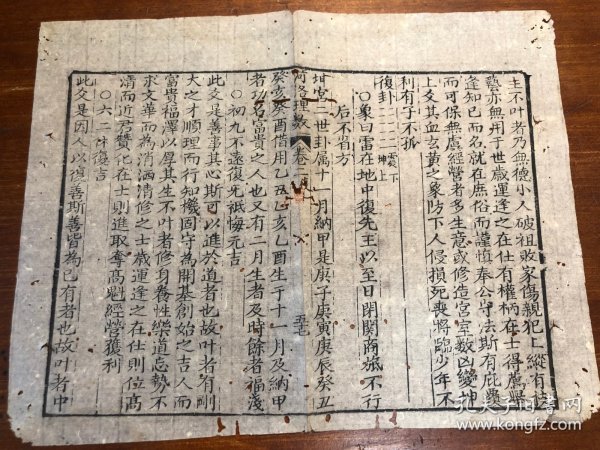 主不叶者乃無德小人破祖敗家傷親犯上縱有技
藝亦無用于世歲運逢之在仕有權柄在士得薦舉
逢知己而名就在庶俗而謹慎奉公守法斯有庇
而可保無虞經營者多生意或修造宮室數凶變神
上爻其血玄黄之象防下人侵損死喪將臨少年不
利有子不孤
復卦 震下 坤上
○象曰雷在地中復先王以至日閉関商旅不行
后不省方
坤宮一世卦属十一月納甲是庚子庚寅庚辰癸丑
河洛理数 卷二 五十
癸亥癸酉借用乙丑乙亥乙酉生于十一月及納甲
者功名富貴之人也又有二月生者及時餘者福淺
○初九不遠復无祗悔元吉
此爻是善事其心斯可以進於道者也故叶者有剛
大之才順理而行知機固守為開基創始之吉人而
富貴福澤以厚其生不叶者修身養性樂道忘勢不
求文華而為消洒清修之士歲運逢之在仕則位髙
清而近君賛化在士則進取奪髙魁經營獲利
○六二休復吉
此爻是因人以復善斯善皆為己有者也故叶者中
孔夫子旧书网
www.kongfz.com